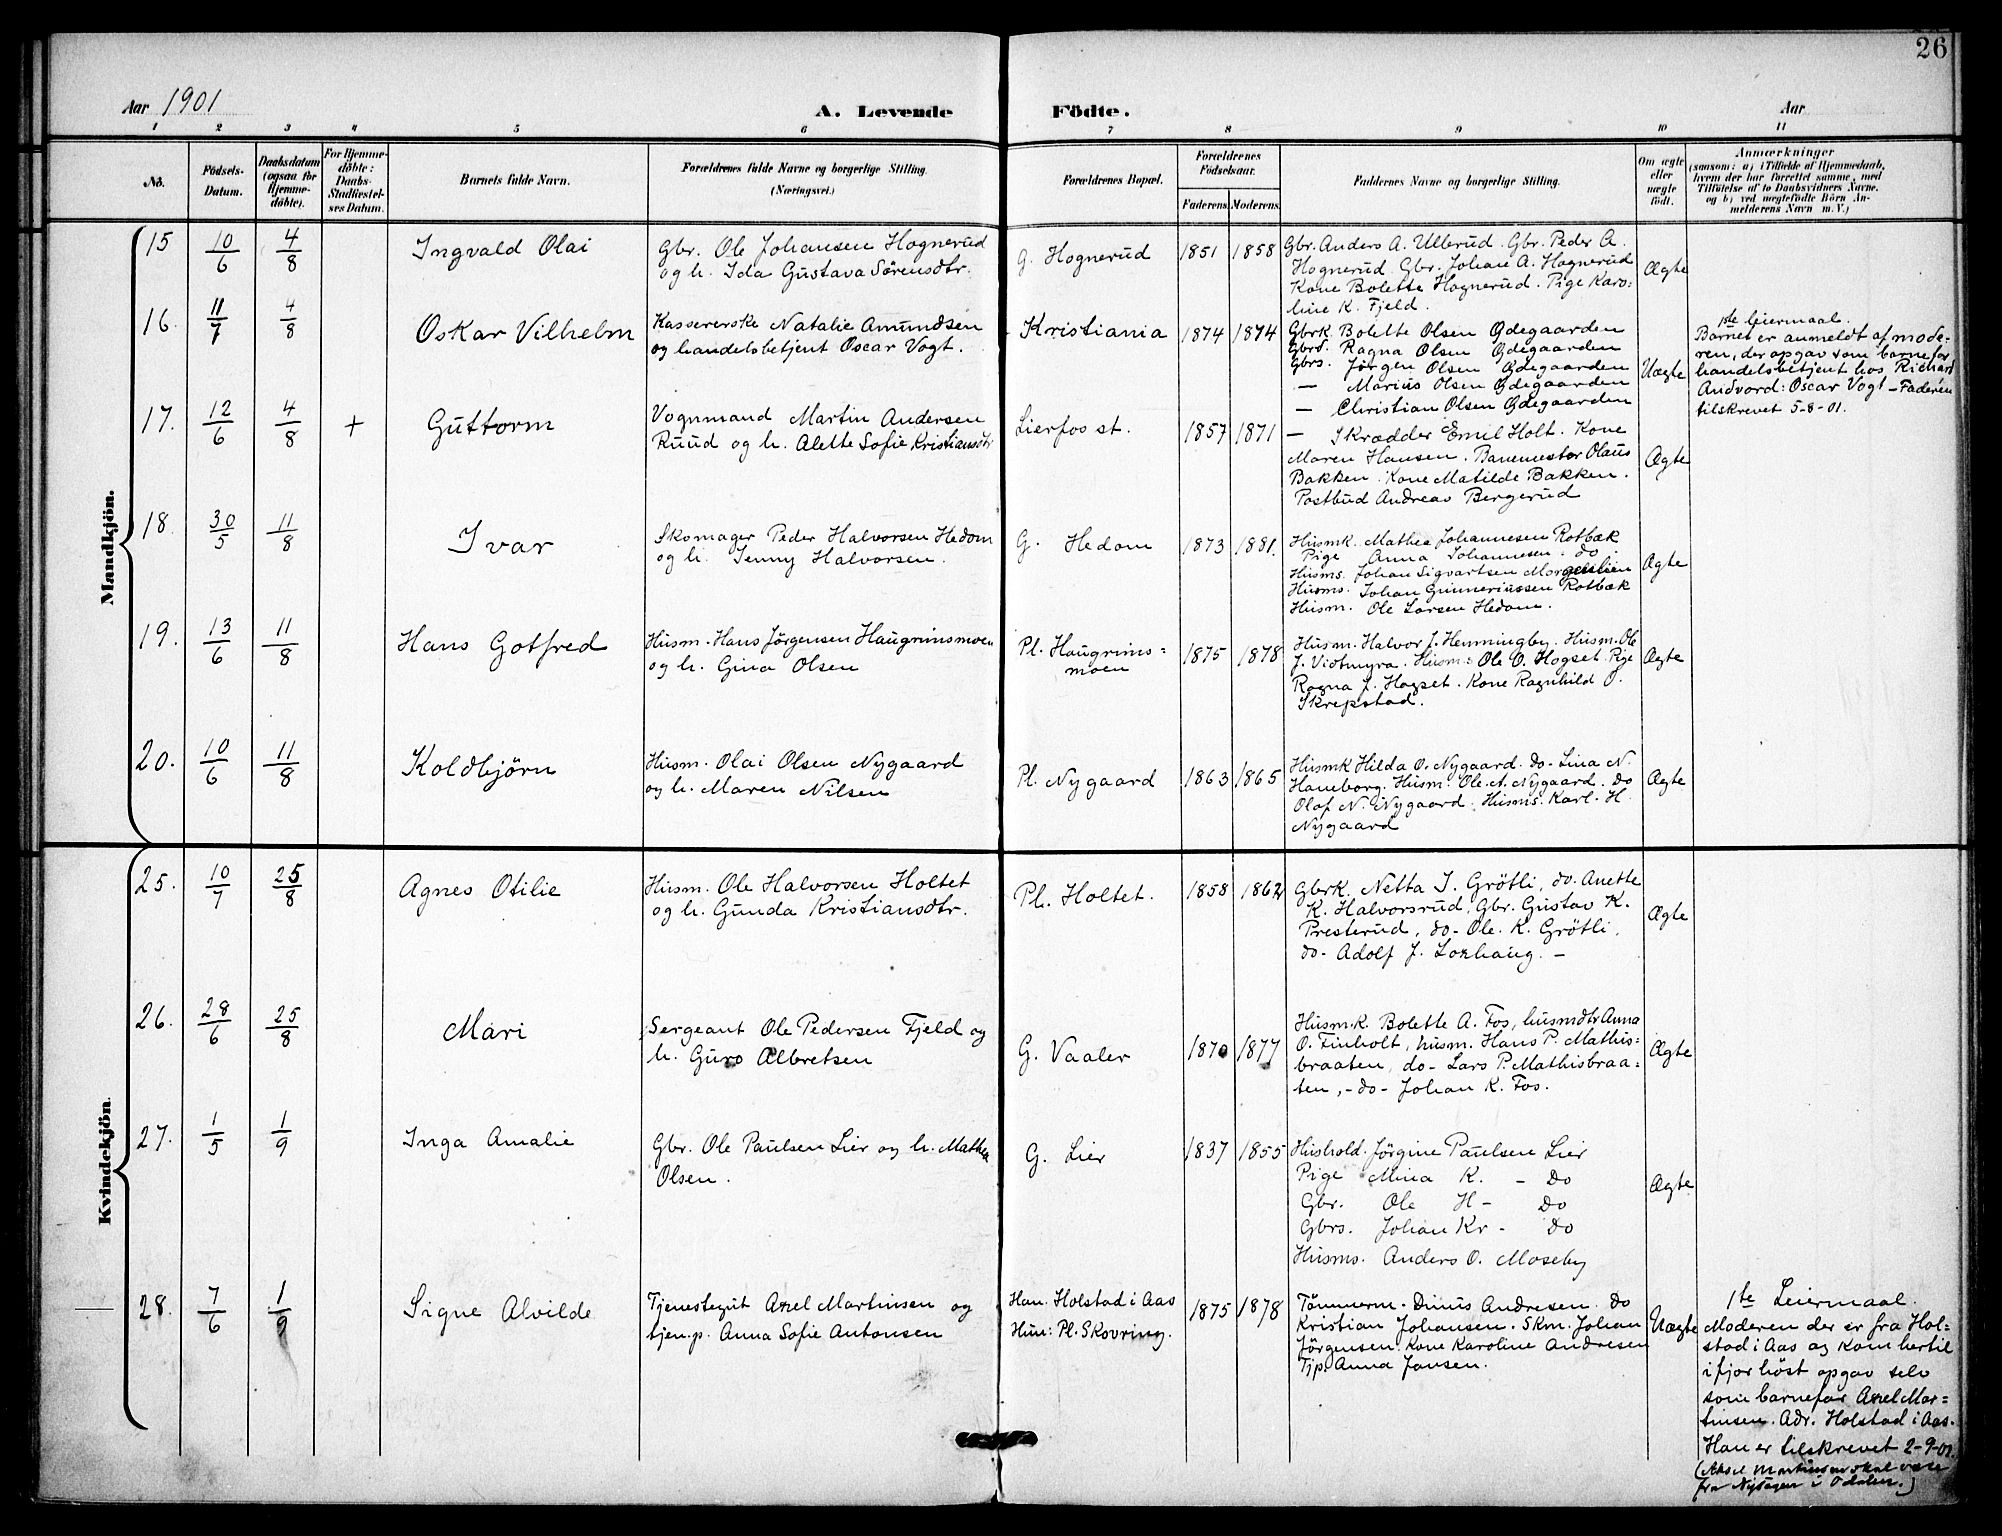 26
Aar 1901
A. Levende Födte.
Aar
1 2 3 4 5 6 7 8 9 10 11
No.
Födsels-Datum.
Daabsdatum (ogsaa for Hjemme-döbte).
For Hjemme-döbte: Daabs-Stadfæstel-ses Datum.
Barnets fulde Navn.
Forældrenes fulde Navne og borgerlige Stilling.
(Næringsvei.)
Forældrenes Bopæl.
Forældrenes Födselsaar.
Faderens. Moderens.
Faddernes Navne og borgerlige Stilling.
Om ægte eller uægte födt.
Anmærkninger
(saasom: a) i Tilfælde af Hjemmedaab,
hvem der har forrettet samme, med
Tilföielse af to Daabsvidners Navne,
og b) ved uægtefödte Börn An-
melderens Navn m. V.)
Mandkjön.
15 10/6 4/8 Ingvald Olai
Gbr. Ole Johansen Hognerud
og h. Ida Gustava Sörensdtr.
G. Hognerud 1851 1858
Gbr. Anders A. Ullerud. Gbr. Peder A.
Hognerud. Gbr. Johan A. Hognerud
Kone Bolette Hognerud. Pige Karo-
line K. Fjeld.
Ægte
16. 11/7 4/8 Oskar Vilhelm
Kassererske Natalie Amundsen
og handelsbetjent Oscar Vogt.
Kristiania 1874 1874
Gbrk. Bolette Olsen Ödegaarden
Gbrd. Ragna Olsen Ödegaarden
Gbrs. Jörgen Olsen Ödegaarden
— Marius Olsen Ödegaarden
— Christian Olsen Ödegaarden
Uægte
1ste leiermaal.
Barnet er anmeldt af mode-
ren, der opgav som barnefar
handelsbetjent hos Richard
Andvord: Oscar Vogt – Faderen
tilskrevet 5-8-01.
17. 12/6 4/8 + Guttorm
Vognmand Martin Andersen
Ruud og h. Alette Sofie Kristiansdtr
Lierfos st. 1857 1871
— Skrædder Emil Holt. Kone
Maren Hansen. Banemester Olaus
Bakken. Kone Matilde Bakken.
Postbud Andreas Bergerud
Ægte
18. 30/5 11/8 Ivar
Skomager Peder Halvorsen Hedom
og h. Jenny Halvorsen.
G. Hedom 1873 1881.
Husmk. Mathea Johannesen Rotbæk
Pige Anna Johannesen. do.
Husms. Johan Sigvartsen
Husms. Johan Gunneriussen Rotbæk
Husm. Ole Larsen Hedom.
Ægte
19. 13/6 11/8 Hans Gotfred
Husm. Hans Jörgensen Haugrimsmoen
og h. Gina Olsen
Pl. Haugrims-
moen
1875 1878
Husm. Halvor J. Henningby. Husm. Ole
J. Vidtmyra. Husm. Ole O. Hogset. Pige
Ragna J. Hogset. Kone Ragnhild O.
Skrepstad.
Ægte
20. 10/6 11/8 Koldbjörn
Husm. Olai Olsen Nygaard
og h. Maren Nilsen
Pl. Nygaard 1863 1865
Husmk Hilda O. Nygaard. do. Lina N.
Haneborg. Husm. Ole. A. Nygaard. Do
Olaf N. Nygaard. Husms. Karl. H.
Nygaard
Ægte
Kvindekjön.
25. 10/7 25/8 Agnes Otilie
Husm. Ole Halvorsen Holtet
og h. Gunda Kristiansdtr.
Pl. Holtet. 1858 1862
Gbrk. Netta I. Grötli, do. Anette
K. Halvorsrud, Gbr. Gustav K.
Presterud, do- Ole. K. Grötli.
do- Adolf J. Loxhaug. –
Ægte
26. 28/6 25/8 Mari
Sergeant Ole Pedersen Fjeld og
h. Guro Albretsen
G. Vaaler 1870 1877
Husm.k. Bolette A. Fos, husmdtr Anna
O. Finholt, husm. Hans P. Mathis-
braaten, do- Lars P. Mathisbraa-
ten, -do- Johan K. Fos.
Ægte
27. 1/5 1/9 Inga Amalie
Gbr. Ole Paulsen Lier og h. Mathea
Olsen.
G. Lier 1837 1855
Hushold. Jörgine Paulsen Lier
Pige Mina K. – Do
Gbr. Ole H – Do
Gbrs. Johan Kr – Do
Husms. Anders O. Moseby
Ægte
28. 7/6 1/9 Signe Alvilde
Tjenestegut Axel Martinsen og
tjen.p. Anna Sofie Antonsen
Han. Holstad i Aas
Hun: Pl. Skovring.
1875 1878
Tömmerm. Dinus Andresen. Do
Kristian Johansen. Skm. Johan
Jörgensen. Kone Karoline Andresen
Tjp. Anna Jansen.
Uægte
1te Leiermaal.
Moderen der er fra Hol-
stad i Aas og kom hertil
i fjor höst opgav selv
som barnefar Axel Mar-
tinsen. Adr. Holstad i Aas.
Han er tilskrevet 2-9-01.
(Aksel Martinsen skal være
fra i Odalen.)